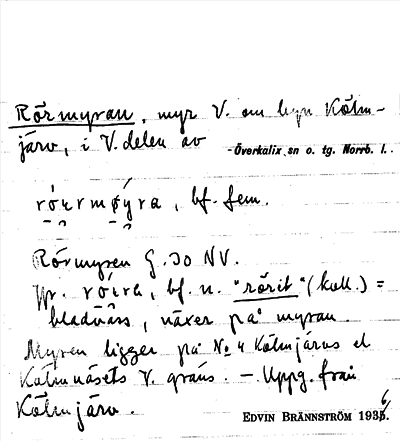 Rörmyran, myr V. om byn Kölm-
järv, i V. delen av
Överkalix sn o. tg. Norrb. l.
bf. fem.
Rörmyren G. 30 NV.
rö̀ira, bf. n. "rörit" (koll.) =
bladvass, växer på myran.
Myren ligger på No 4 Kölmjärvs el
Kölmnäsets V. gräns. — Uppg. från
Kölmjärv.
EDVIN BRÄNNSTRÖM 1936.